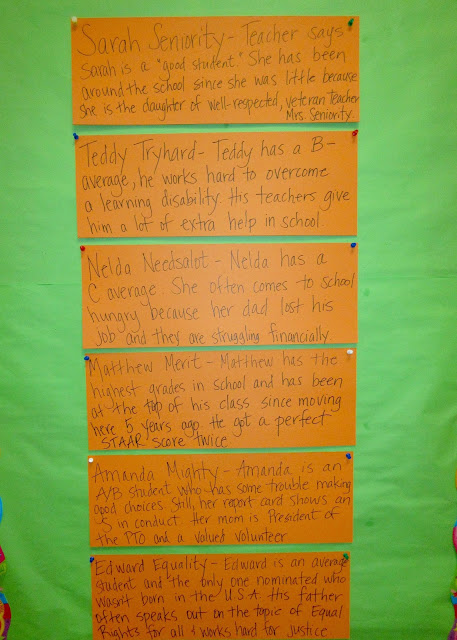 Sarah Seniority - Teacher says
Sarah is a "good student." She has been
around the school since she was little because
she is the daughter of well-respected, veteran teacher
Mrs. Seniority.
Teddy Tryhard - Teddy has a B-
average, he works hard to overcome
a learning disability. His teachers give
him a lot of extra help in school.
Nelda Needsalot - Nelda has a
C average. She often comes to school
hungry because her dad lost his
job and they are struggling financially.
Matthew Merit - Matthew has the
highest grades in school and has been
at the top of his class since moving
here 5 years ago. He got a perfect
STAAR score twice
Amanda Mighty - Amanda is an
A/B student who has some trouble making
good choices. Still, her report card shows an
S in conduct. Her mom is President of
the PTO and a valued volunteer
Edward Equality - Edward is an average
student and the only one nominated who
wasn't born in the U.S.A. His father
often speaks out on the topic of Equal
Rights for all & works hard for justice